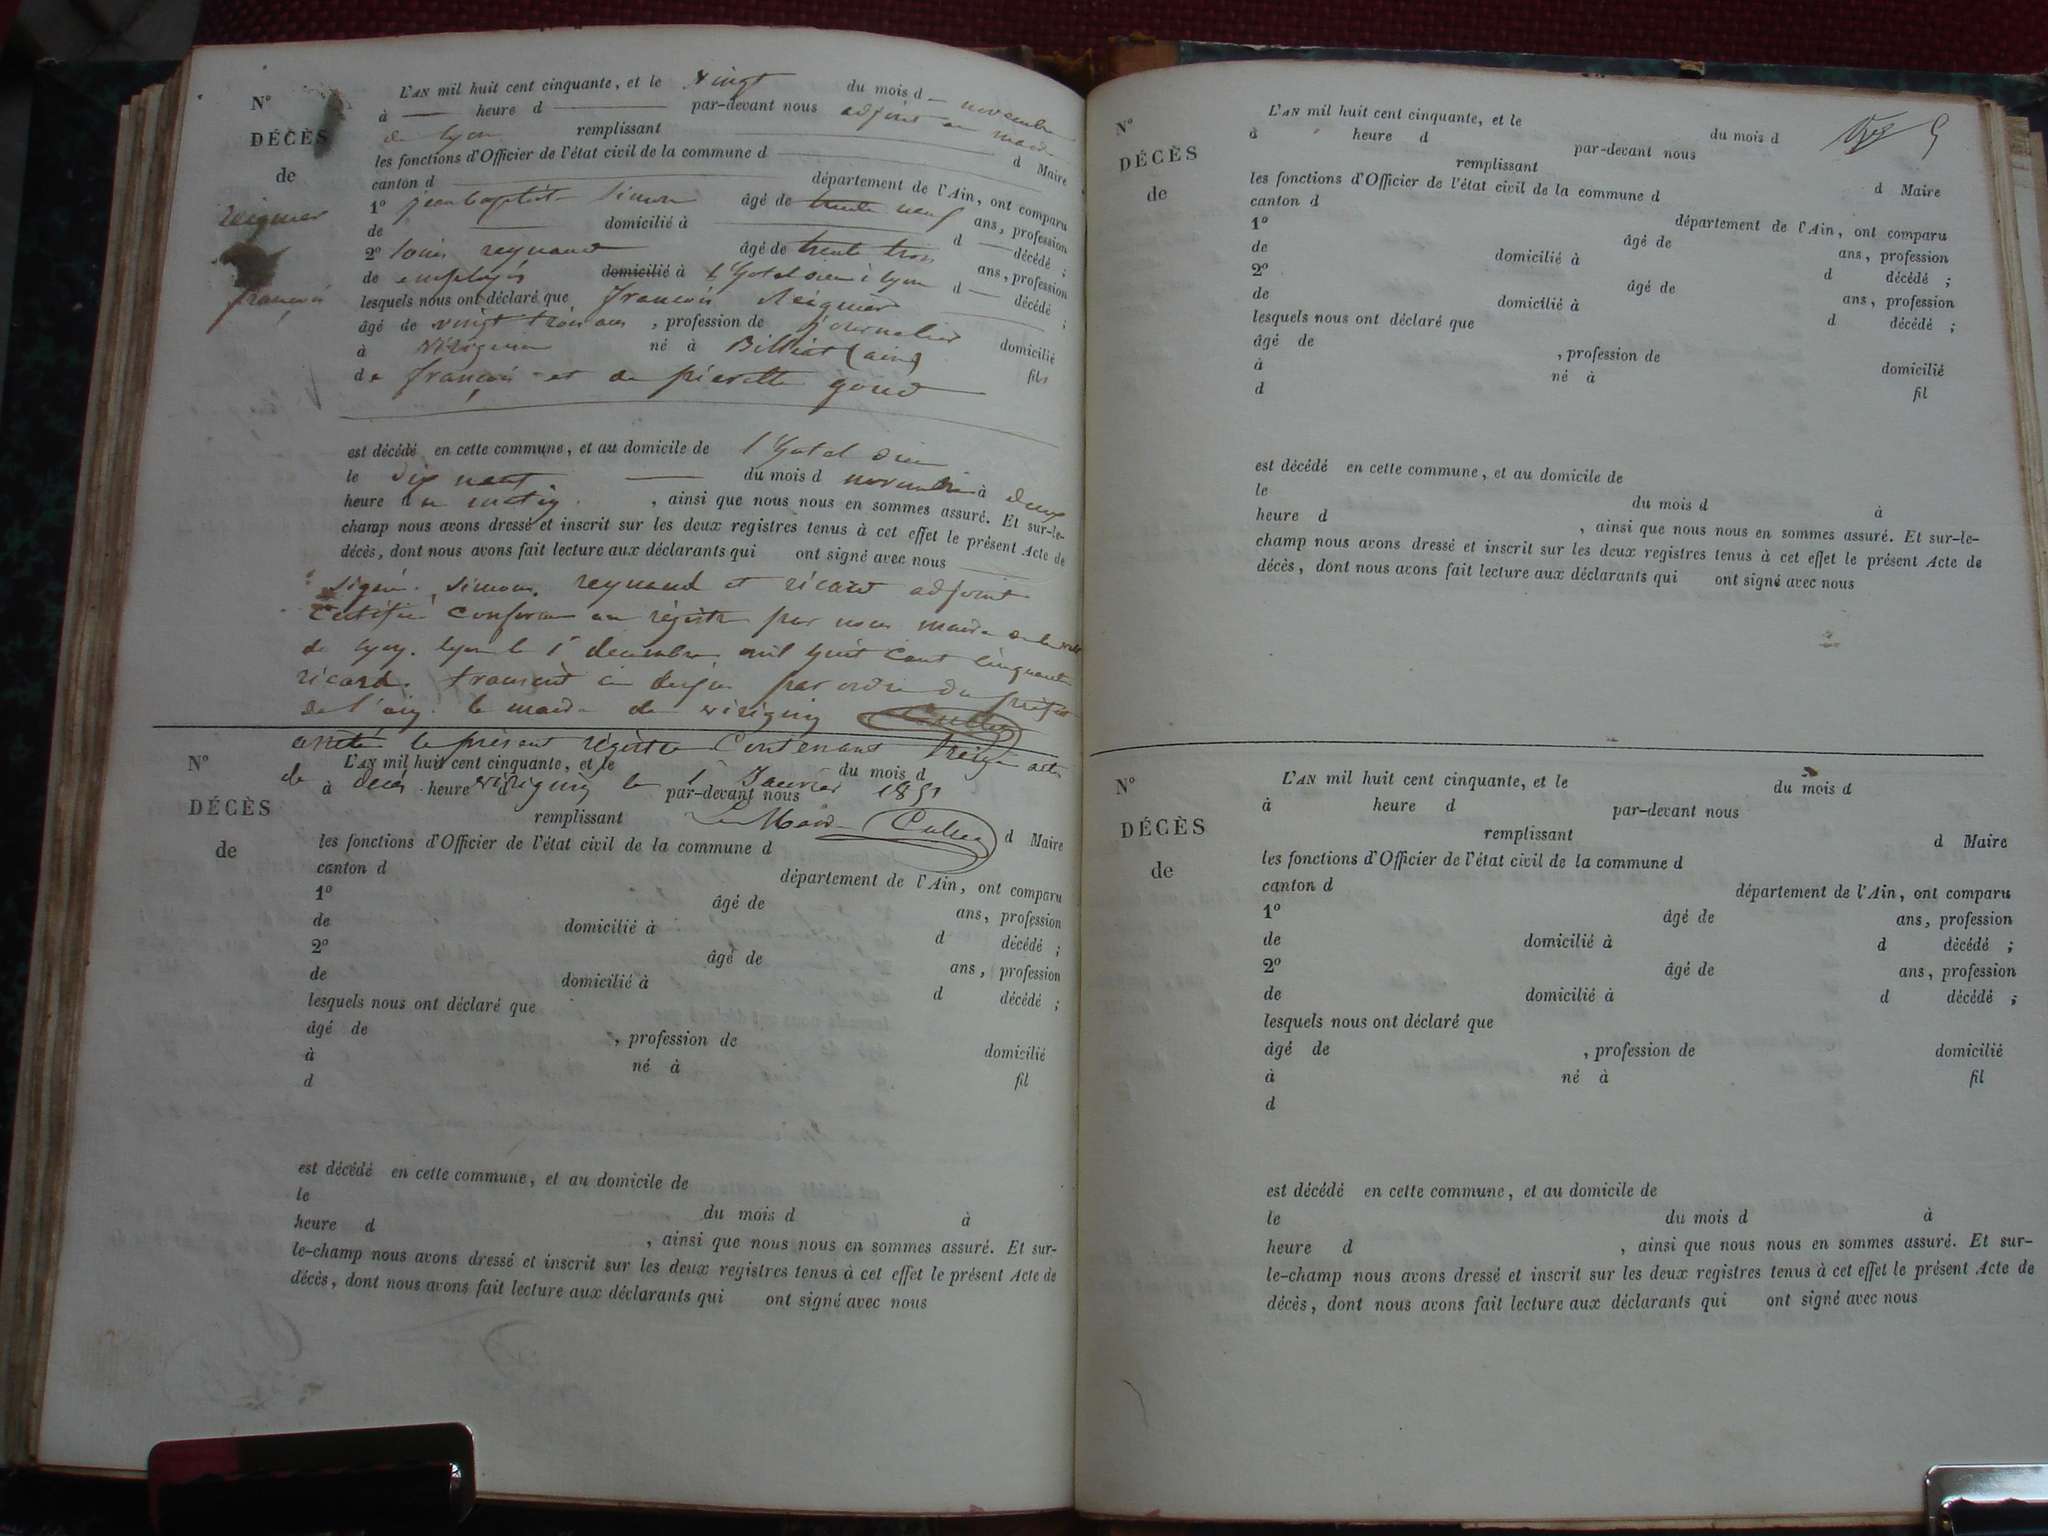 N°
DÉCÈS
de
reiguier
françois
L'AN mil huit cent cinquante, et le vingt du mois d novembre
à heure d par-devant nous adjoint au maire
de lyon remplissant d Maire
les fonctions d'Officier de l'état civil de la commune d
canton d département de l'Ain, ont comparu
1° jean baptiste Simon âgé de trente neuf ans, profession
de domicilié à d décédé ;
2° louis reynaud âgé de trente trois ans, profession
de employés domicilié à l'hotel dieu à lyon d décédé ;
lesquels nous ont déclaré que françois reiguier
âgé de vingt trois ans , profession de journalier domicilié
à virignin né à Billiat (ain) fils
de françois et de pierrette goud
est décédé en cette commune, et au domicile de l'hotel dieu
le dix neuf du mois d novembre à deux
heure du matin , ainsi que nous nous en sommes assuré. Et sur-le-
champ nous avons dressé et inscrit sur les deux registres tenus à cet effet le présent Acte de
décès, dont nous avons fait lecture aux déclarants qui ont signé avec nous
signé. simon. reynaud et ricard adjoint
certifié conforme au régistre par nous maire de la ville
de lyon. lyon le 1er décembre mil huit cent cinquante
ricard. transcrit par ordre du préfet
de l'ain. le maire de virignin
arrêté le présent régistre contenant treize actes
de décès virignin le 1er Janvier 1851
Le Maire
N°
DÉCÈS
de
L'AN mil huit cent cinquante, et le du mois d
à heure d par-devant nous
remplissant d Maire
les fonctions d'Officier de l'état civil de la commune d
canton d département de l'Ain, ont comparu
1° âgé de ans, profession
de domicilié à d décédé ;
2° âgé de ans, profession
de domicilié à d décédé ;
lesquels nous ont déclaré que
âgé de , profession de domicilié
à né à fil
d
est décédé en cette commune, et au domicile de
le du mois d à
heure d , ainsi que nous nous en sommes assuré. Et sur-
le-champ nous avons dressé et inscrit sur les deux registres tenus à cet effet le présent Acte de
décès, dont nous avons fait lecture aux déclarants qui ont signé avec nous
N°
DÉCÈS
de
L'AN mil huit cent cinquante, et le du mois d
à heure d par-devant nous
remplissant d Maire
les fonctions d'Officier de l'état civil de la commune d
canton d département de l'Ain, ont comparu
1° âgé de ans, profession
de domicilié à d décédé ;
2° âgé de ans, profession
de domicilié à d décédé ;
lesquels nous ont déclaré que
âgé de , profession de domicilié
à né à fil
d
est décédé en cette commune, et au domicile de
le du mois d à
heure d , ainsi que nous nous en sommes assuré. Et sur-le-
champ nous avons dressé et inscrit sur les deux registres tenus à cet effet le présent Acte de
décès, dont nous avons fait lecture aux déclarants qui ont signé avec nous
N°
DÉCÈS
de
L'AN mil huit cent cinquante, et le du mois d
à heure d par-devant nous
remplissant d Maire
les fonctions d'Officier de l'état civil de la commune d
canton d département de l'Ain, ont comparu
1° âgé de ans, profession
de domicilié à d décédé ;
2° âgé de ans, profession
de domicilié à d décédé ;
lesquels nous ont déclaré que
âgé de , profession de domicilié
à né à fil
d
est décédé en cette commune, et au domicile de
le du mois d à
heure d , ainsi que nous nous en sommes assuré. Et sur-
le-champ nous avons dressé et inscrit sur les deux registres tenus à cet effet le présent Acte de
décès, dont nous avons fait lecture aux déclarants qui ont signé avec nous